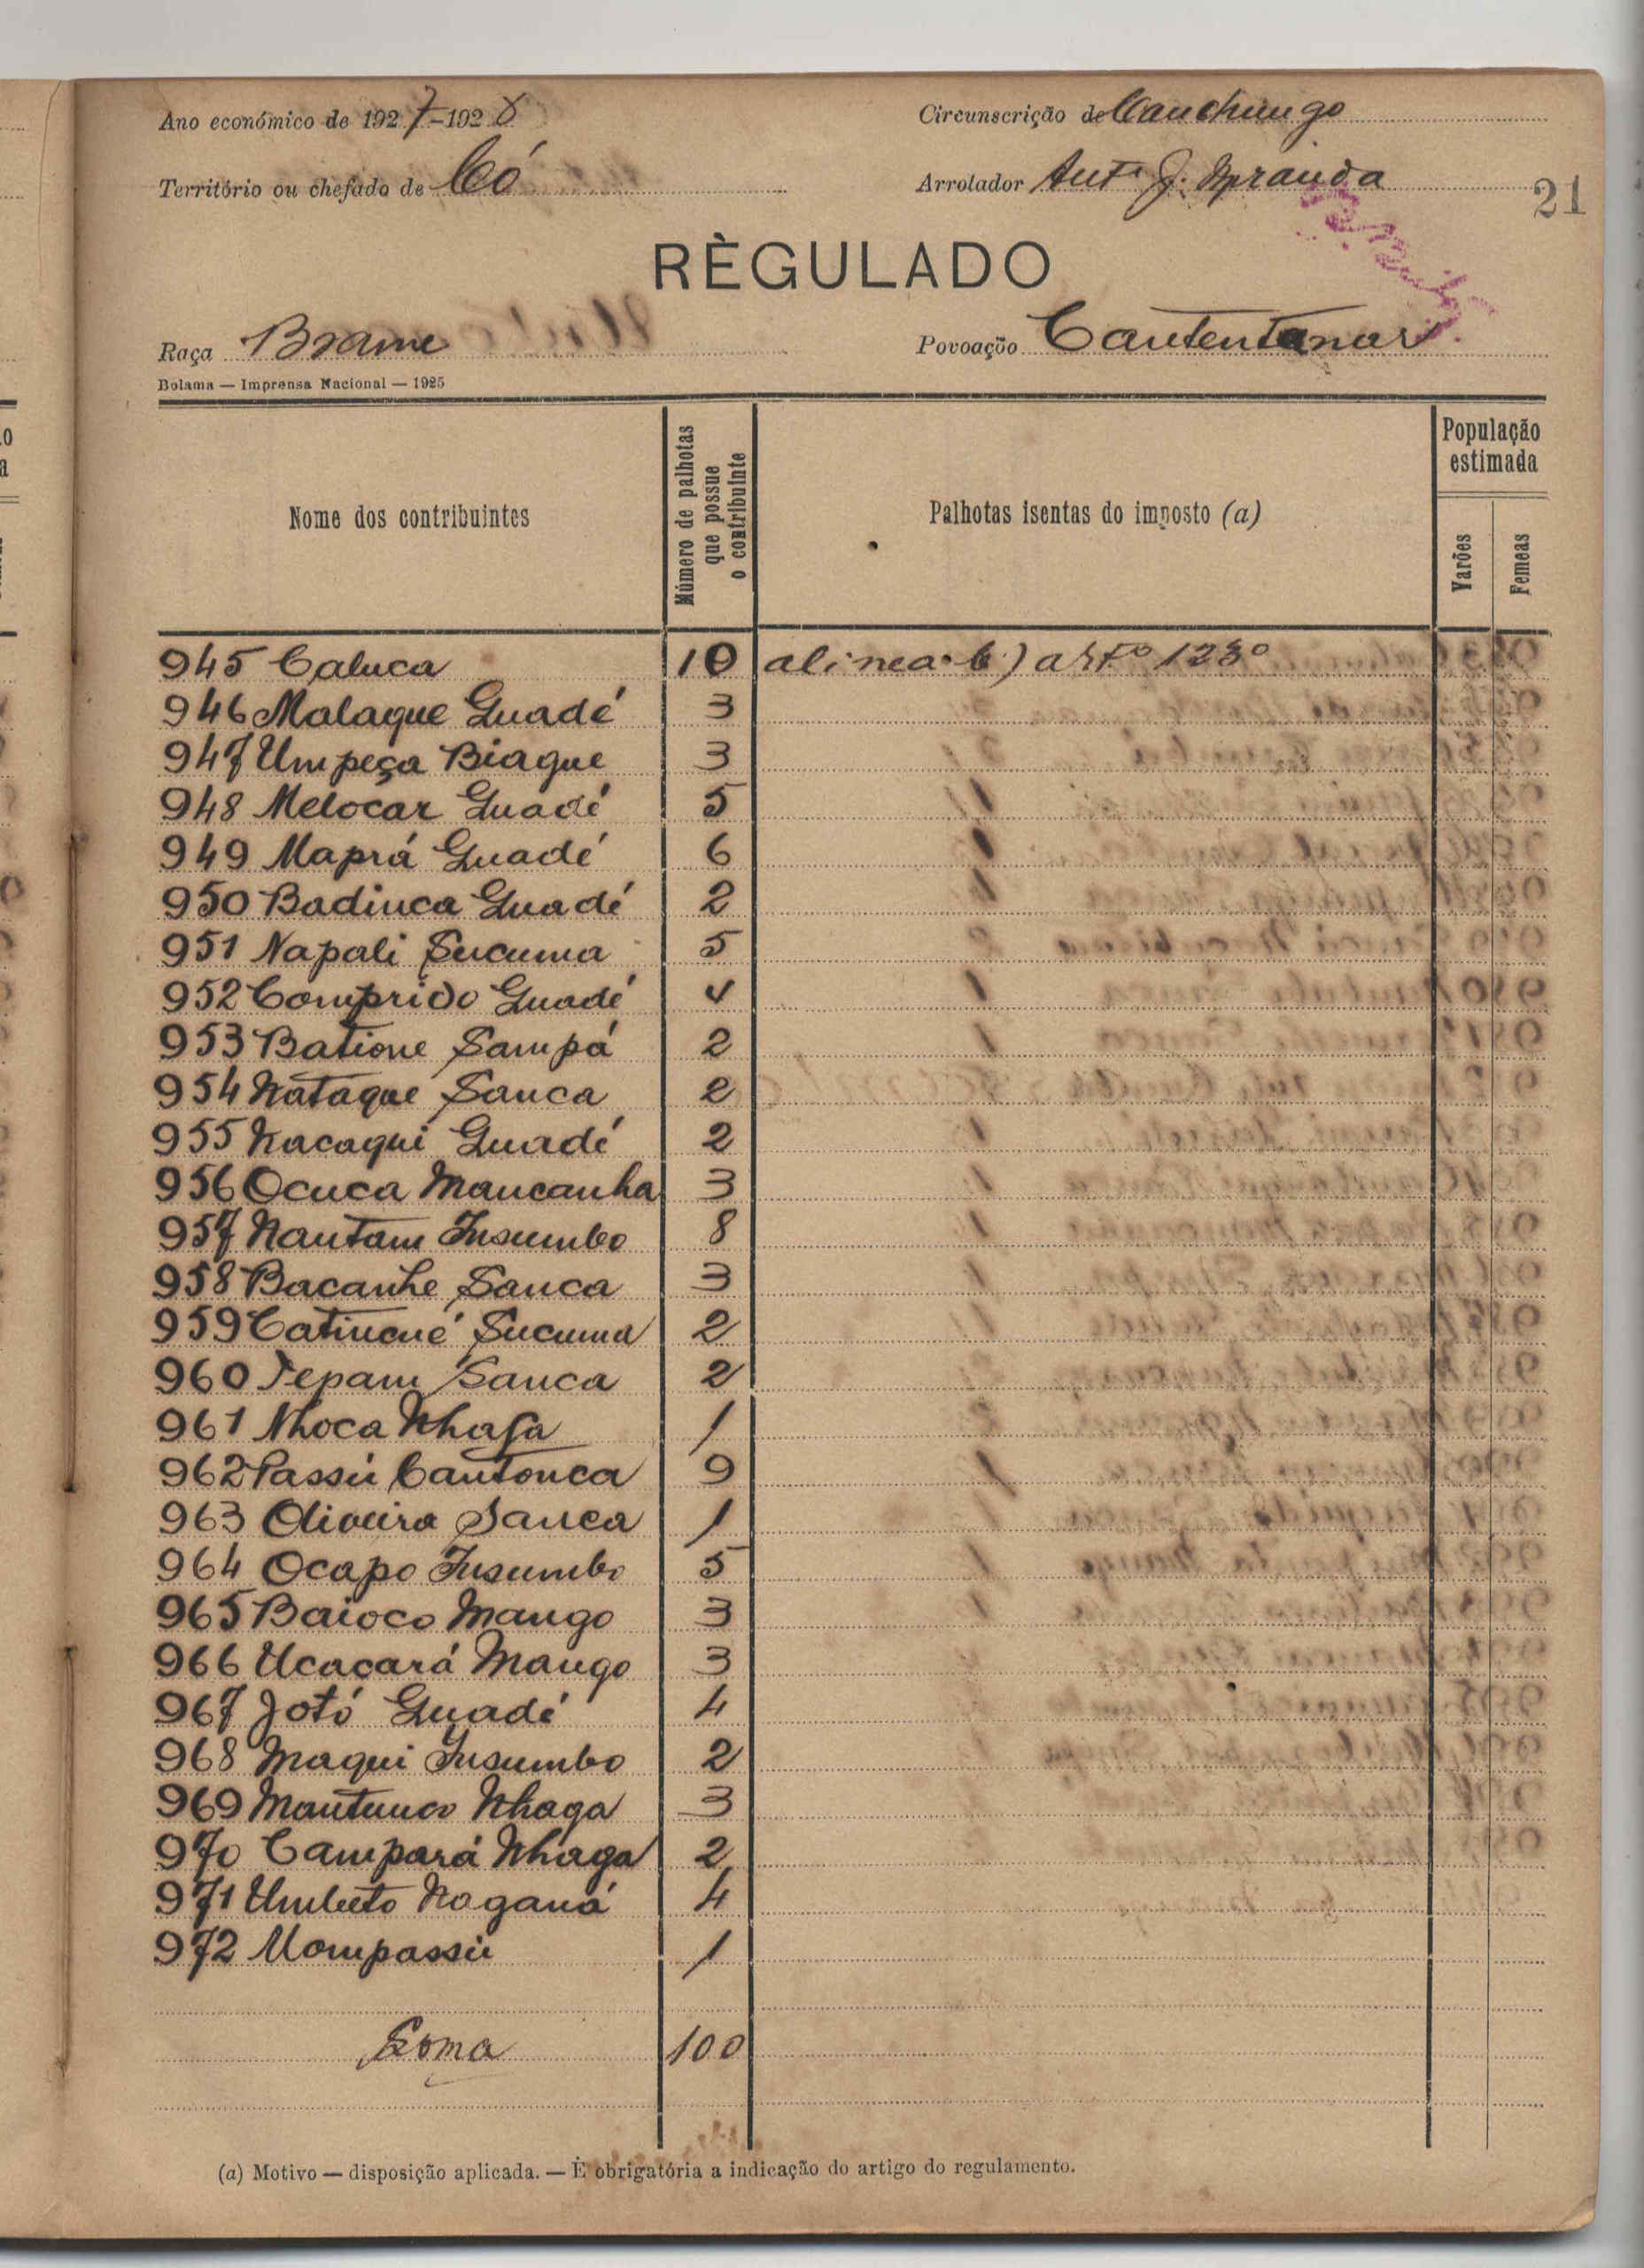 Ano económico de 1927-1928
Circunscrição de Canchungo
Território ou chefado de Có
Arrolador Antº J. Miranda
21
RÈGULADO
Raça Brame
Povoação Cantentanar
Bolama — Imprensa Nacional — 1925
Nome dos contribuintes
Número de palhotas que possue o contribuinte
Palhotas isentas do imposto (a)
População estimada
Varões
Femeas
945 Caluca 10 alinea b) artº 123º
946 Malaque Guadé 3
947 Umpeça Biague 3
948 Melocar Guadé 5
949 Maprá Guadé 6
950 Badinca Guadé 2
951 Napali Sucuma 5
952 Comprido Guadé 4
953 Batione Sampá 2
954 Nataque Sanca 2
955 Nacaqui Guadé 2
956 Ocuca Mancanha 3
957 Nantam Insumbo 8
958 Bacanhe Sanca 3
959 Catinené Sucuma 2
960 Tepam Sanca 2
961 Nhoca Nhaga 1
962 Passú Cantonca 9
963 Oliveira Sanca 1
964 Ocapo Insumbo 5
965 Baioco Mango 3
966 Ucaçará Mango 3
967 Jotó Guadé 4
968 Maqui Insumbo 2
969 Mantunco Nhaga 3
970 Campará Nhaga 2
971 Umbeto Naganá 4
972 Mompassú 1
Soma 100
(a) Motivo — disposição aplicada. — É obrigatória a indicação do artigo do regulamento.